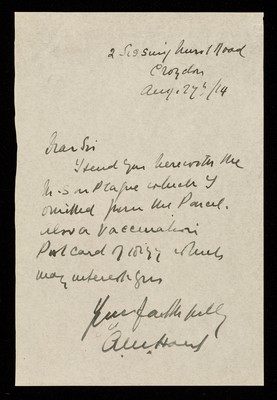 2 Sissinghurst Road
Croydon
Aug. 27th/14
Dear Sir
I send you herewith the
Ms on Plague which I
omitted from the Parcel.
also a Vaccination
Postcard of 1899 which
may interest you
Yours faithfully